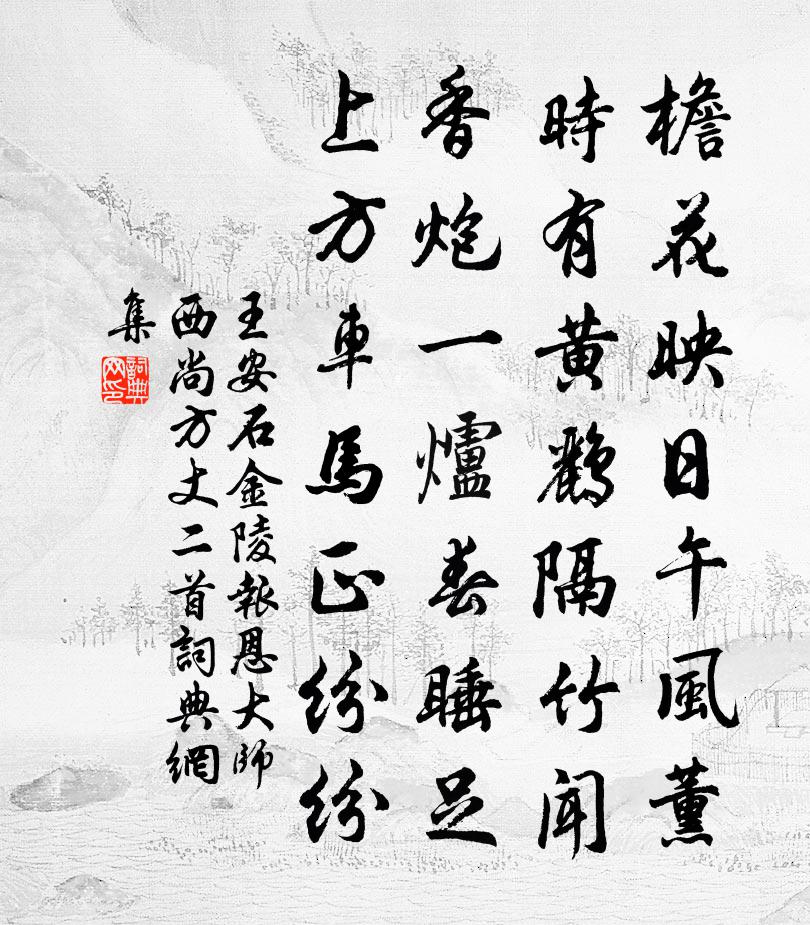 檐花映日午風薰
時有黃鸝隔竹聞
香炮一爐春睡足
上方車馬正紛紛
王安石金陵報恩大師
西尚方丈二首詞典網
集
詞典网印